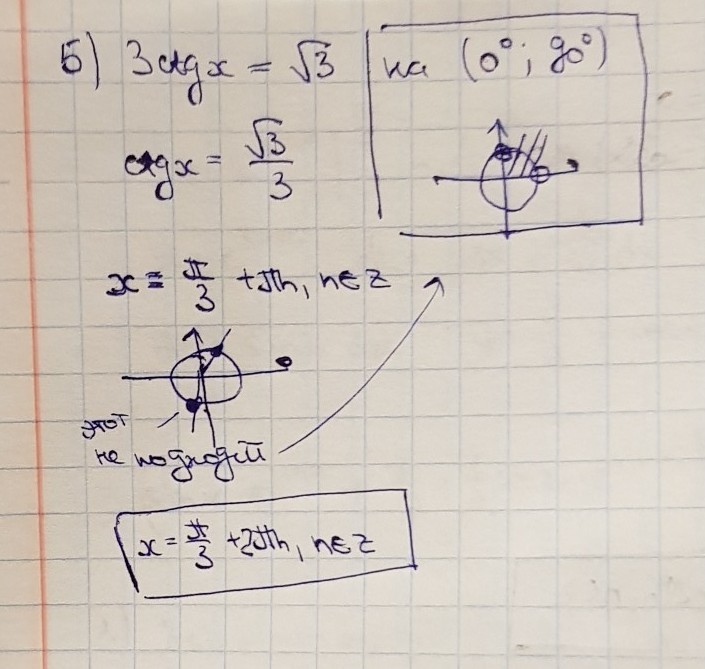 б) 3ctgx = √3 на (0°; 90°)
ctgx = √3/3
x = π/3 + πn, n∈z
этот
не подходит
x = π/3 + 2πn, n∈z